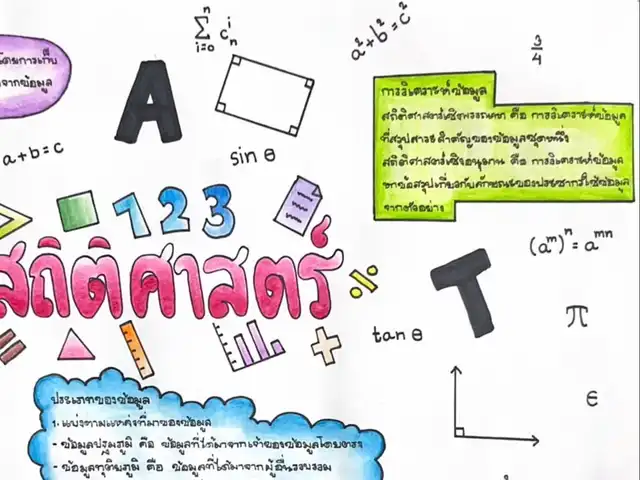 โดยการเก็บ
จากข้อมูล
a+b=c
A
n
Σ cᵢₙ
i=0
sin θ
a²+b²=c²
3/4
การวิเคราะห์ข้อมูล
สถิติศาสตร์เชิงพรรณนา คือ การวิเคราะห์ข้อมูล
ที่สรุปสาระสำคัญของข้อมูลชุดหนึ่ง
สถิติศาสตร์เชิงอนุมาน คือ การวิเคราะห์ข้อมูล
หาข้อสรุปเกี่ยวกับลักษณะของประชากรใช้ข้อมูล
จากตัวอย่าง
123
สถิติศาสตร์
%
(aᵐ)ⁿ = aᵐⁿ
T
tan θ
π
ϵ
ประเภทของข้อมูล
1. แบ่งตามแหล่งที่มาของข้อมูล
- ข้อมูลปฐมภูมิ คือ ข้อมูลที่ได้มาจากเจ้าของข้อมูลโดยตรง
- ข้อมูลทุติยภูมิ คือ ข้อมูลที่ได้มาจากผู้อื่นรวบรวม